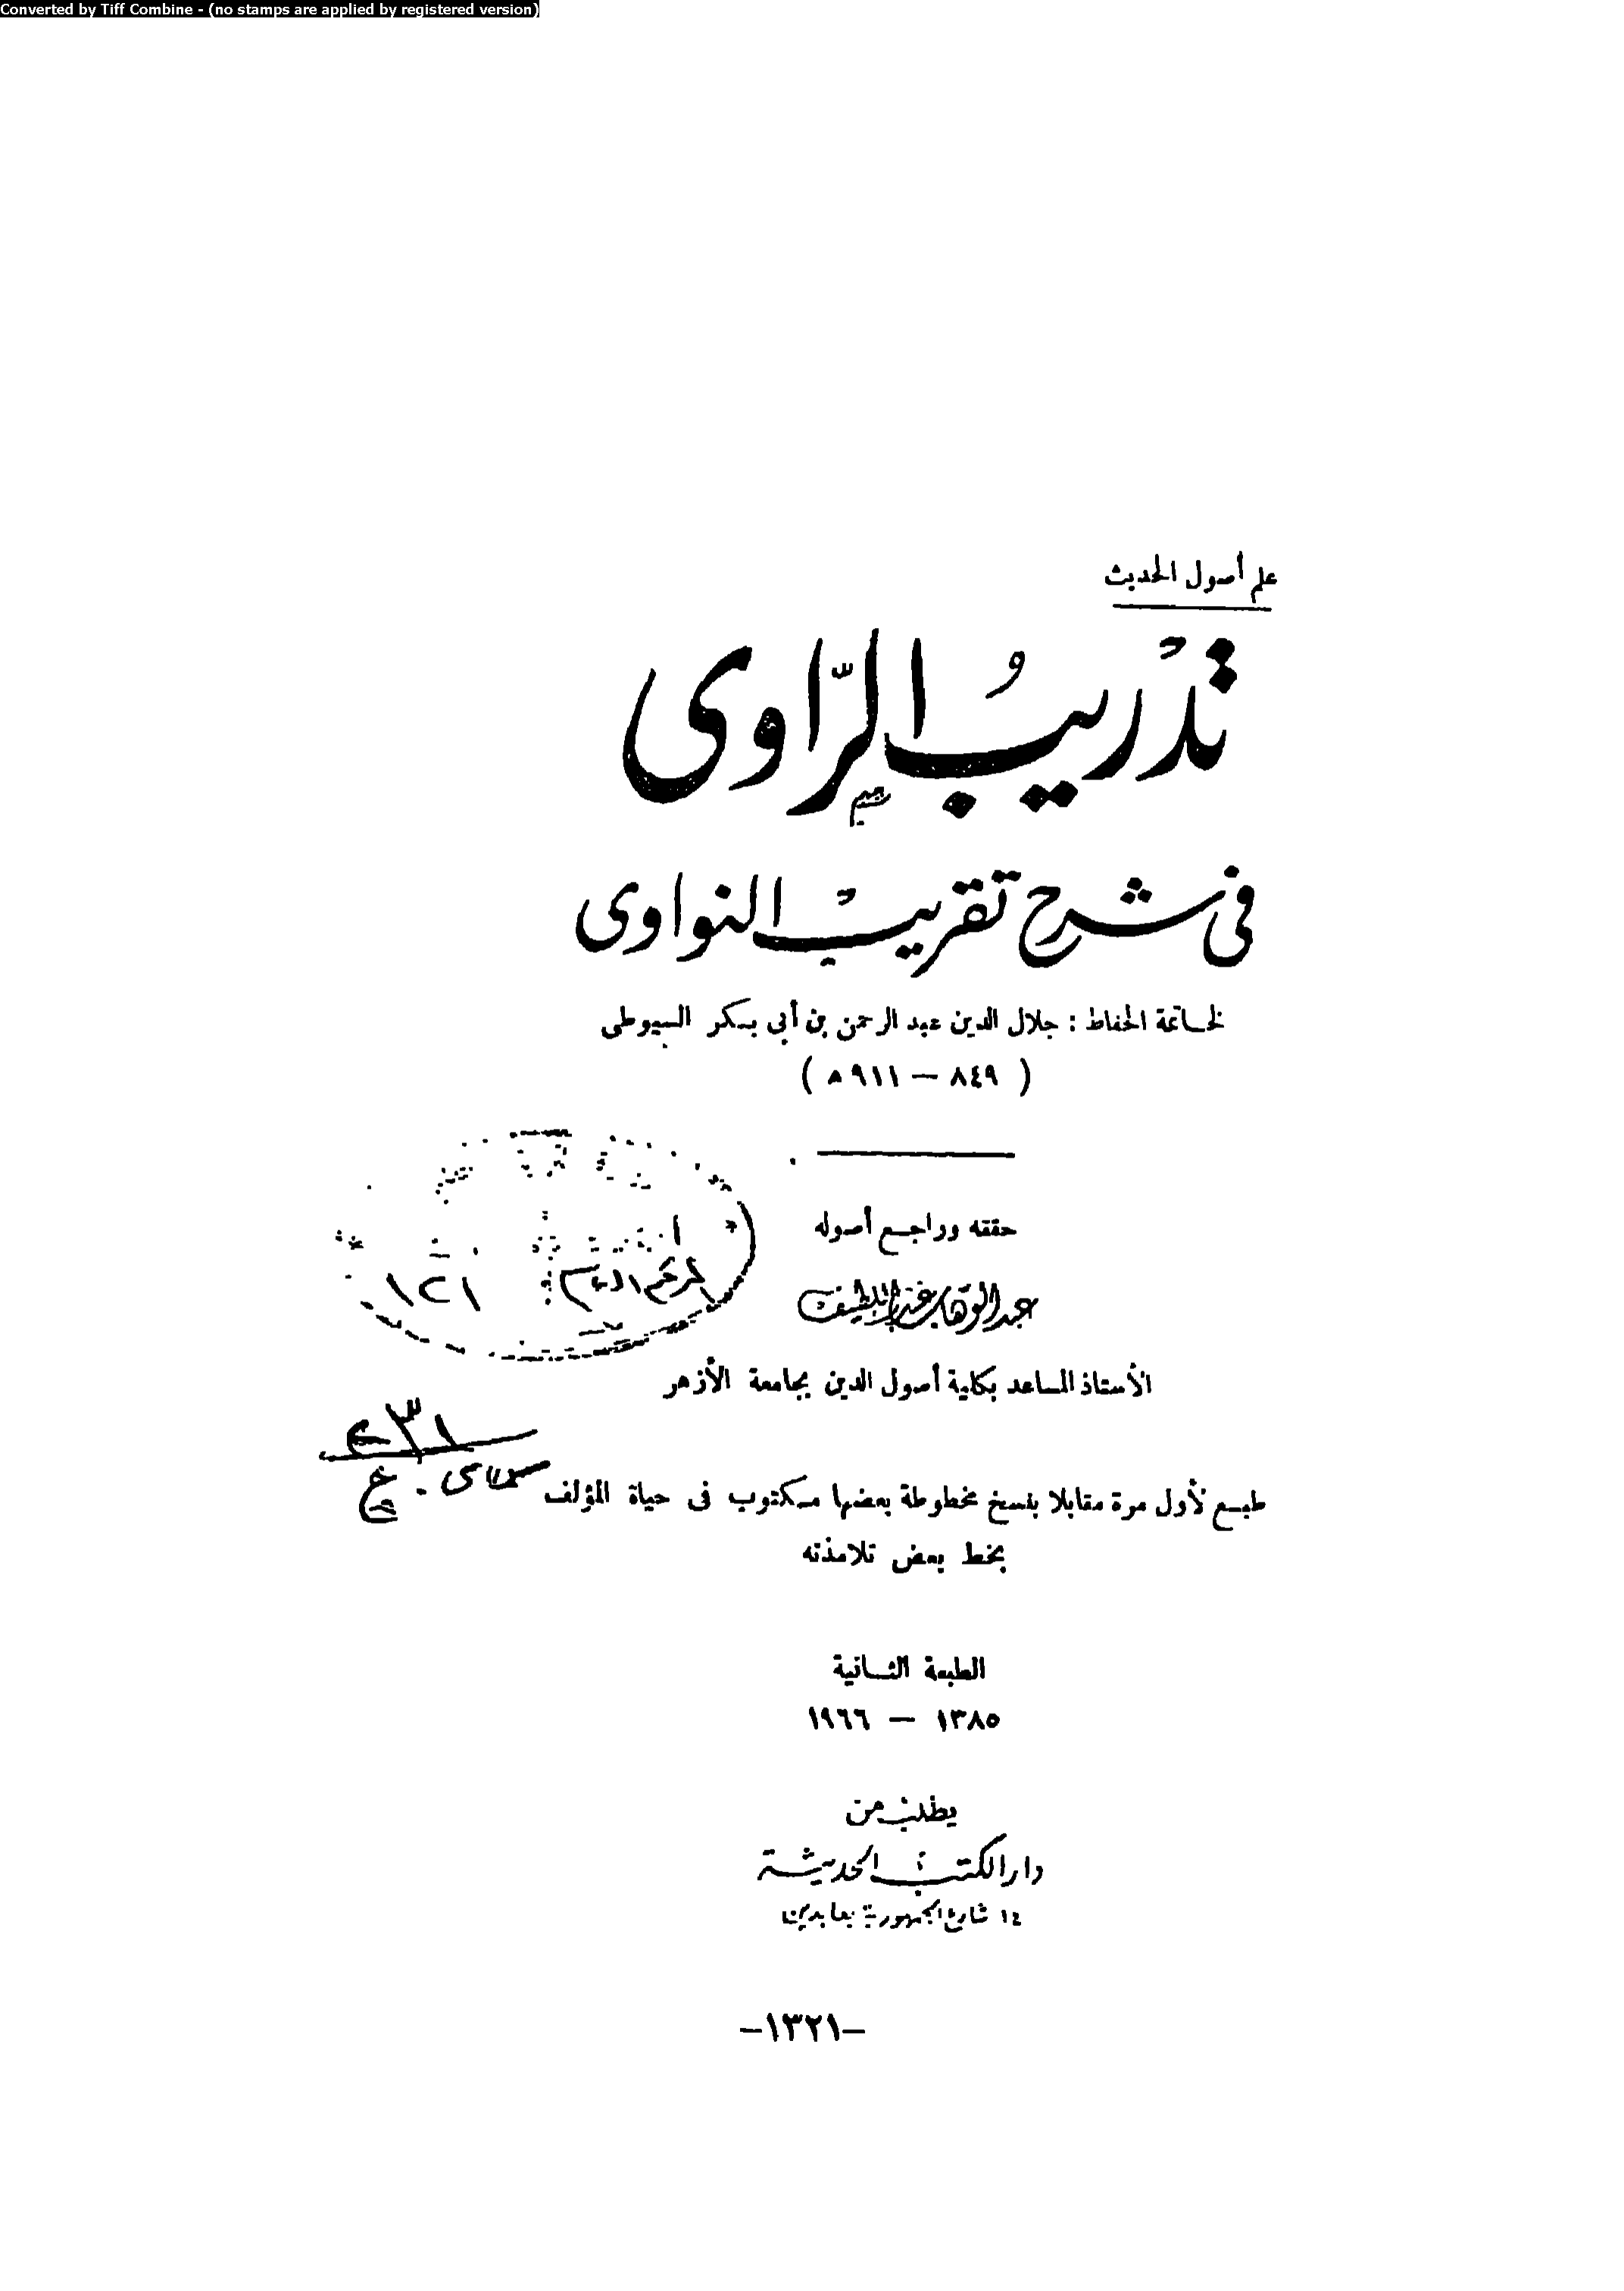 Converted by Tiff Combine - (no stamps are applied by registered version)
علم أصول الحديث
تدْريبُ الرّاوى
فى شرح تقريب النواوى
لخاتمة الحفاظ : جلال الدين عبد الرحمن بن أبى بكر السيوطى
( ٨٤٩ — ٩١١ ه )
حققه وراجع أصوله
عبد الوهاب عبد اللطيف
الأستاذ المساعد بكلية أصول الدين بجامعة الأزهر
طبع لأول مرة مقابلا بنسخ مخطوطة بعضها مكتوب فى حياة المؤلف
بخط بعض تلامذته
الطبعة الثانية
١٣٨٥ — ١٩٦٦
يطلب من
دار الكتب الحديثة
١٤ شارع الجمهورية بعابدين
-١٣٢١-